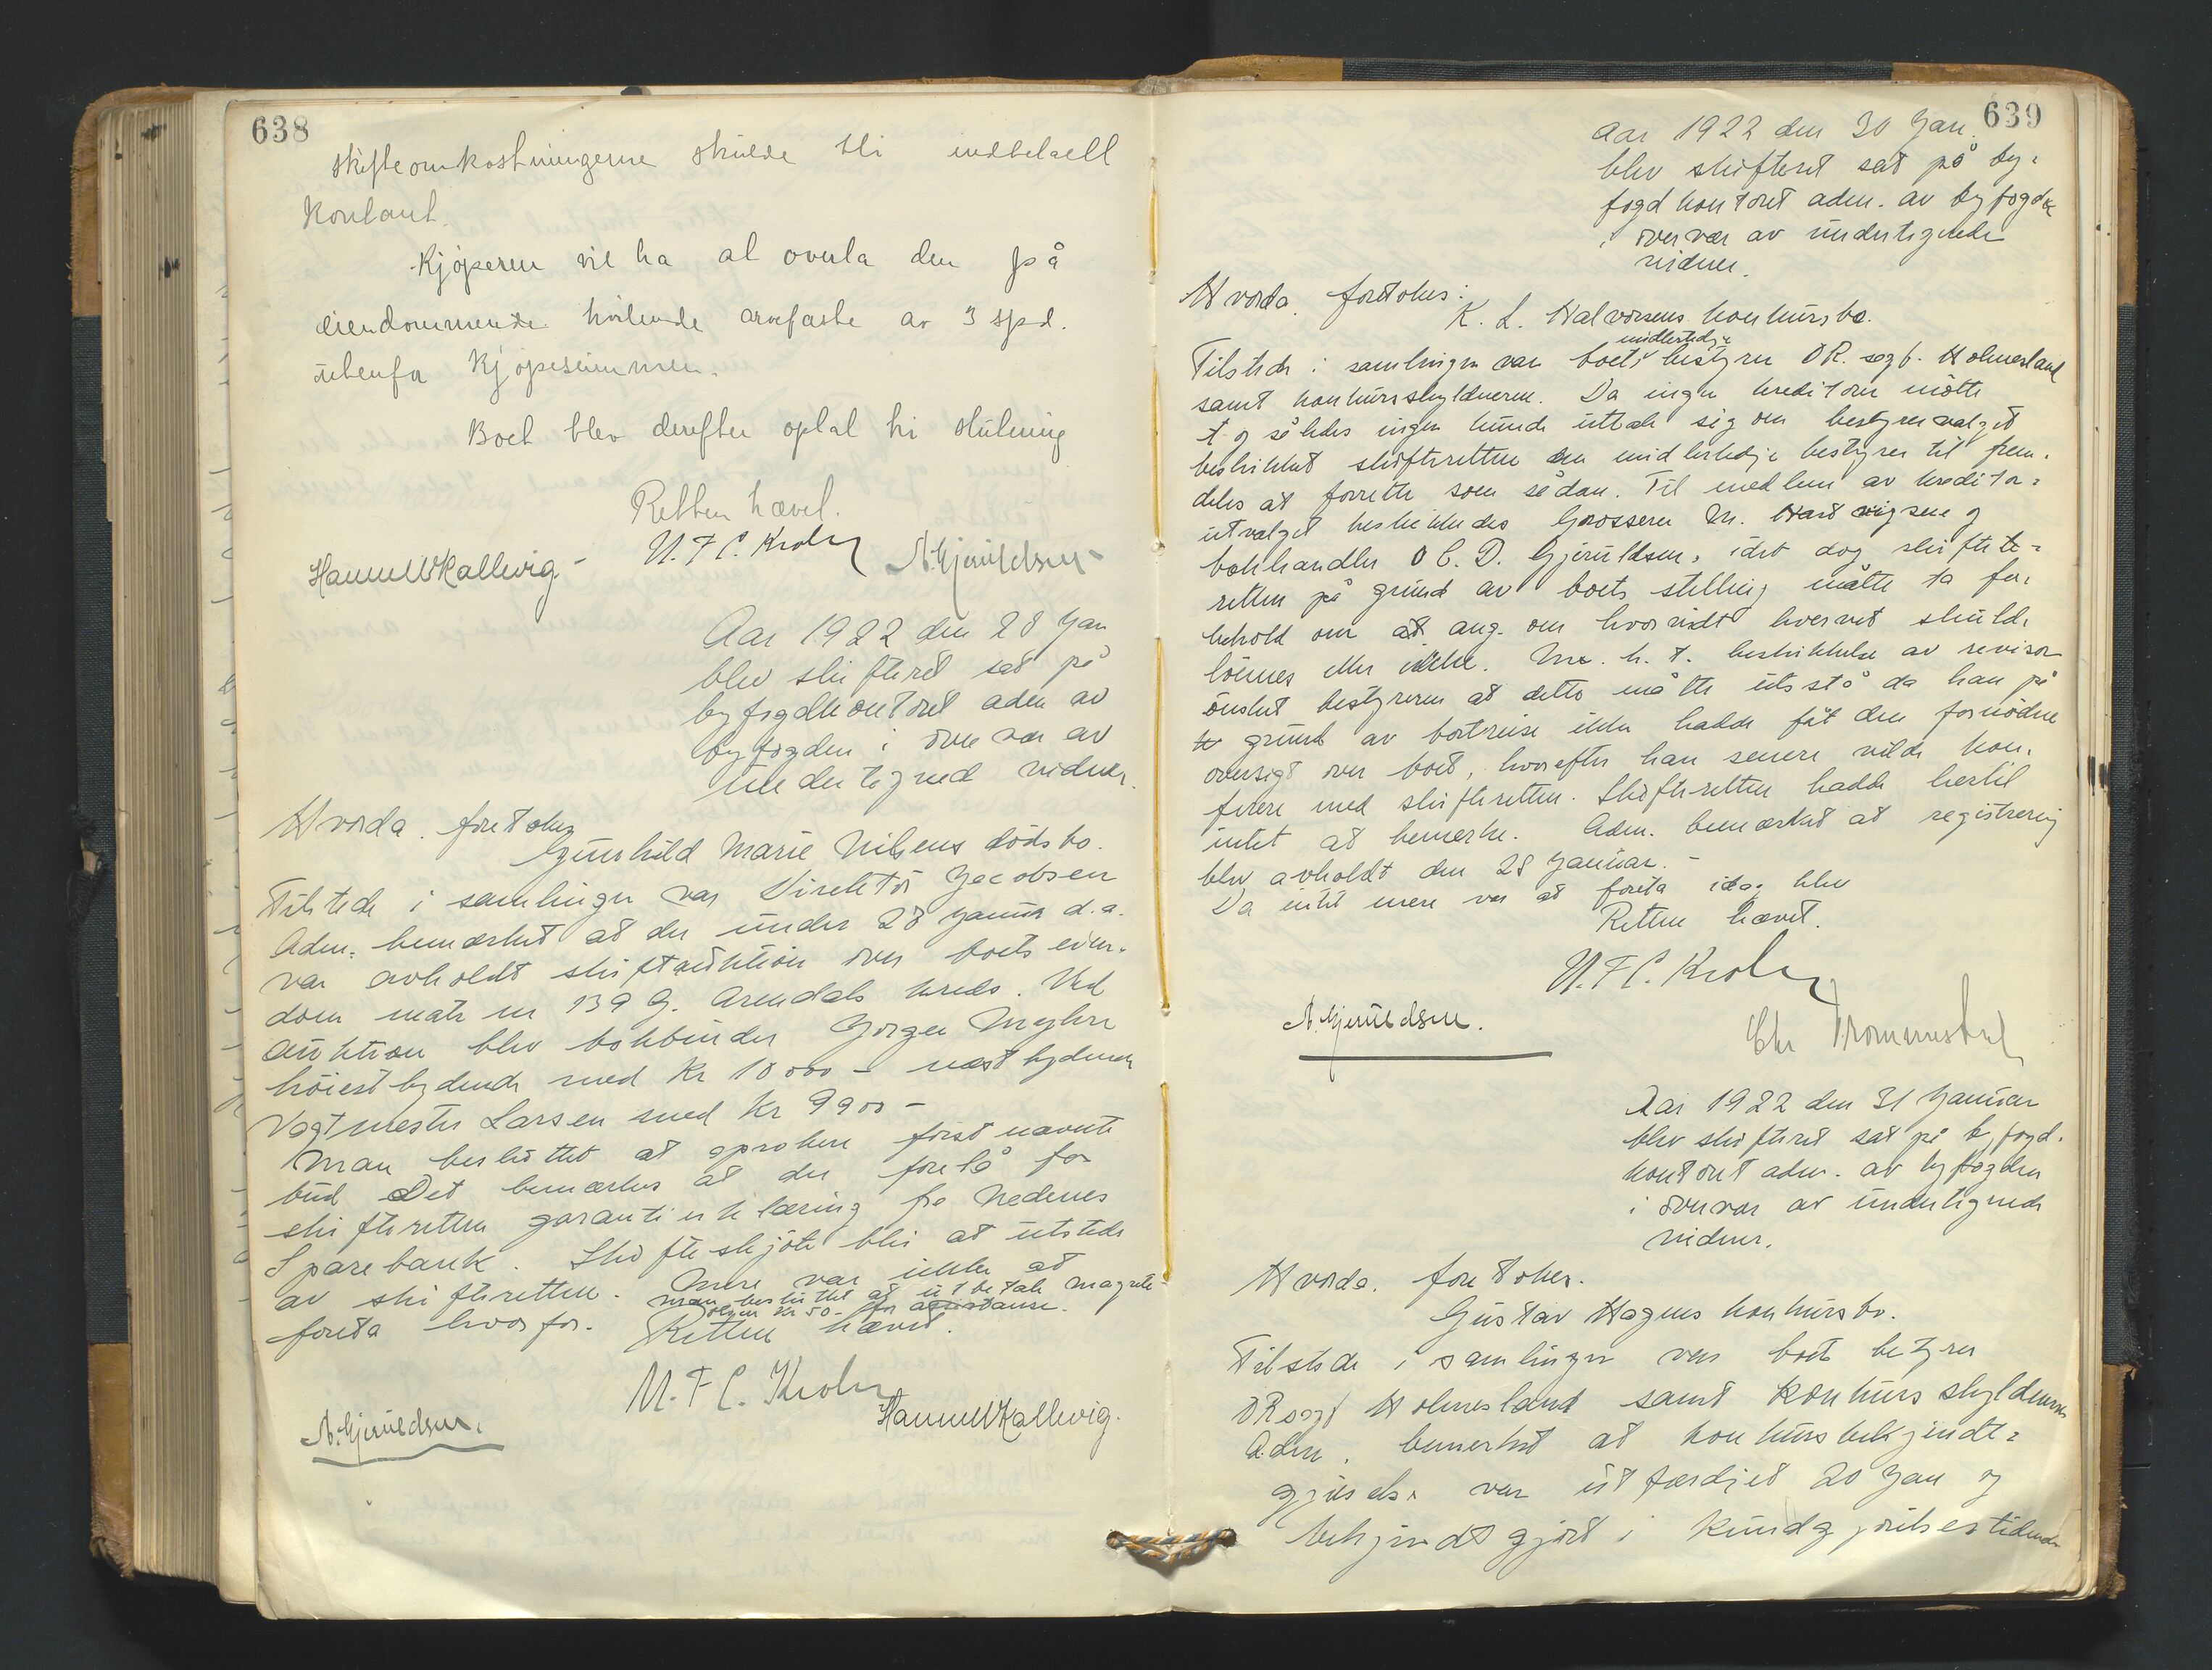 638
skifteomkostningerne skulde bli indbetalt
kontant.
Kjøperen vil ha at overta den på
eiendommende hvilende arvefæste av 3 spd.
utenfor kjøpesummen.
Boet blev derefter optat til slutning
Retten hævet.
U. F. C. Krohn
Hanne W Kallevig - A. Gjeruldsen
Aar 1922 den 28 Jan
blev skifteret sat på
byfogdkontoret adm av
byfogden i overvær av
undertegned vidner.
Hvorda. foretokes
Gunhild Marie Nilsens dödsbo.
Tilstede i samlingen var Direktör Jacobsen
Adm. bemærket at der under 28 januar d.a.
var avholdt skifteauktion over boets eien-
dom matr nr 139 G. Arendals kreds. Ved
auktion blev bokbinder Jörgen Myhre
höiestbydende med Kr 10000 - næst bydende
Vagtmester Larsen med Kr 9900 -
Man besluttet at aprobere först nævnte
bud Det bemærkes at der forelå for
skifteretten garantierklæring fra Nedenes
Sparebank. Skifteskjöte blir at utstede
av skifteretten. Mere var ikke at
man besluttet at utbetale magrete
Olsen Kr 50- for assistanse.
foreta hvorfor. Retten hævet.
U. F. C. Krohn
Hanne W Kallevig.
A. Gjeruldsen.
639
Aar 1922 den 30 Jan.
blev skifteret sat på by-
fogd kontoret adm. av byfogden
i overvær av undertegnede
vidner.
Hvorda. foretokes:
K. L. Halvorsens konkursbo.
midlertidige
Tilstede i samlingen var boets bestyrer OR. sagf. Holmesland
samt konkursskyldneren. Da ingen kreditorer mötte
og således ingen kunde uttale sig om bestyrervalget
beskikket skifteretten den midlertidige bestyrer til frem-
deles at forrette som sådan. Til medlem av kreditor-
utvalget beskikkedes Grosserer M. Hartvigsen og
bokhandler O C. D. Gjeruldsen, idet dog skifte-
retten på grund av boets stilling måtte ta for-
behold om at ang. om hvorvidt hvervet skulde
lönnes eller ikke. M. h. t. beskikkelse av revisor
önsket bestyreren at dette måtte utstå da han på
grund av bortreise ikke hadde fåt den fornödne
oversigt over boet, hvorefter han senere vilde kon-
ferere med skifteretten. Skifteretten hadde hertil
intet at bemerke. Adm. bemærket at registrering
blev avholdt den 28 januar. -
Da intet mere var at foreta idag blev
Retten hævet.
U. F. C. Krohn
A. Gjeruldsen.
Chr Trommestad
Aar 1922 den 31 januar
blev skifteret sat på byfogd-
kontoret adm. av byfogden
i overvær av undertegnede
vidner.
Hvorda. foretokes.
Gustav Hagens konkursbo.
Tilstede i samlingen var boets bestyrer
OR sagf Holmesland samt Konkursskyldneren
Adm. bemerket at konkursbekjendt-
gjörelse var utfærdiget 20 Jan og
bekjendtgjort i Kundgjörelsestidende